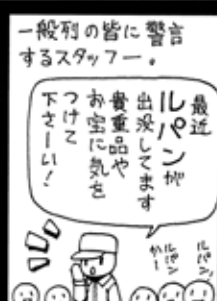 一般列の皆に警言
するスタッフー。
最近
ルパンが
出没してます
貴重品や
お宝に気を
つけて
下さーい!
ルパン
ルパン
かー